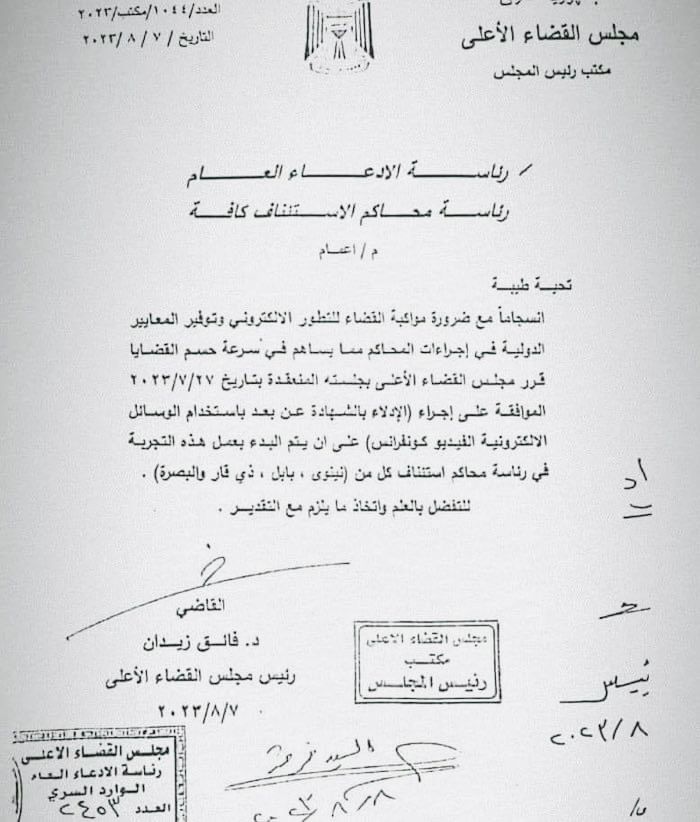 مجلس القضاء الأعلى
مكتب رئيس المجلس
العدد/١٠٤٤/مكتب/٢٠٢٣
التاريخ / ٧ / ٨ / ٢٠٢٣
/ رئاسة الادعاء العام
رئاسة محاكم الاستئناف كافة
م / اعمام
تحية طيبة
انسجاماً مع ضرورة مواكبة القضاء للتطور الالكتروني وتوفير المعايير
الدولية في إجراءات المحاكم مما يساهم في سرعة حسم القضايا
قرر مجلس القضاء الأعلى بجلسته المنعقدة بتاريخ ٢٠٢٣/٧/٢٧
الموافقة على إجراء (الإدلاء بالشهادة عن بعد باستخدام الوسائل
الالكترونية الفيديو كونفرانس) على ان يتم البدء بعمل هذه التجربة
في رئاسة محاكم استئناف كل من (نينوى ، بابل ، ذي قار والبصرة) .
للتفضل بالعلم واتخاذ ما يلزم مع التقدير .
القاضي
د. فائق زيدان
رئيس مجلس القضاء الأعلى
٢٠٢٣/٨/٧
مجلس القضاء الاعلى
مكتب
رئيس المجلس
مجلس القضاء الاعلى
رئاسة الادعاء العام
الوارد السري
العدد ٢٤٥٣
٢٠٢٣/٨
٢٠٢٣/٨/٨